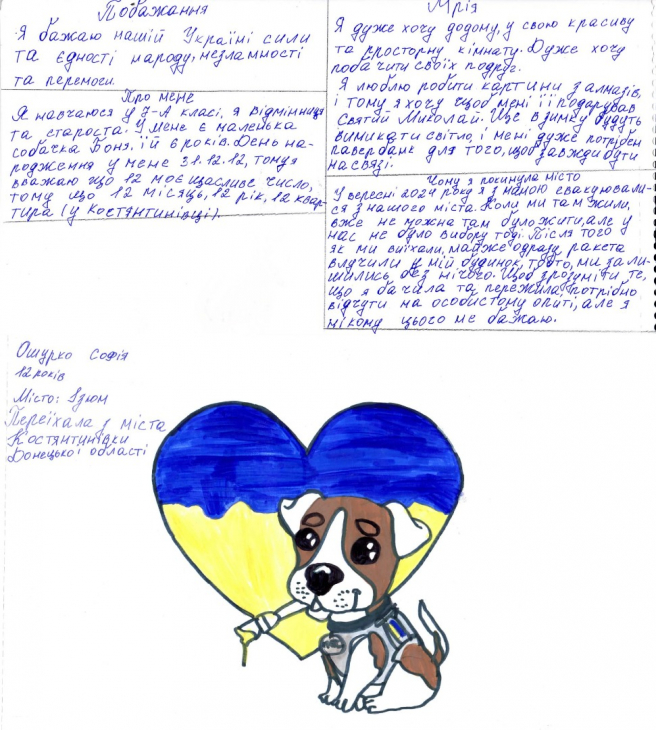 Побажання
Я бажаю нашій Україні сили
та єдності народу, незламності
та перемоги.
Про мене
Я навчаюся у 7-А класі, я відмінниця
та староста. У мене є маленька
собачка Боня, їй 6 років. День на-
родження у мене 31.12.12, тому я
вважаю що 12 моє щасливе число,
тому що 12 місяць, 12 рік, 12 квар-
тира (у Костянтинівці).
Мрія
Я дуже хочу додому, у свою красиву
та просторну кімнату. Дуже хочу
побачити своїх подруг.
Я люблю робити картини з алмазів,
і тому я хочу щоб мені її подарував
Святий Миколай. Ще взимку будуть
вимикати світло, і мені дуже потрібен
павербанк для того, щоб завжди бути
на связі.
Чому я покинула місто
У вересні 2024 року я з мамою евакуювали-
ся з нашого міста. Коли ми там жили,
вже не можна там було жити, але у
нас не було вибору тоді. Після того
як ми виїхали, майже одразу ракета
влучили у мій будинок, тобто, ми зали-
шились без нічого. Щоб зрозуміти те,
що я бачила та пережила потрібно
відчути на особистому опиті, але я
нікому цього не бажаю.
Ошурко Софія
12 років
Місто: Ізюм
Переїхала з міста
Костянтинівки
Донецької області